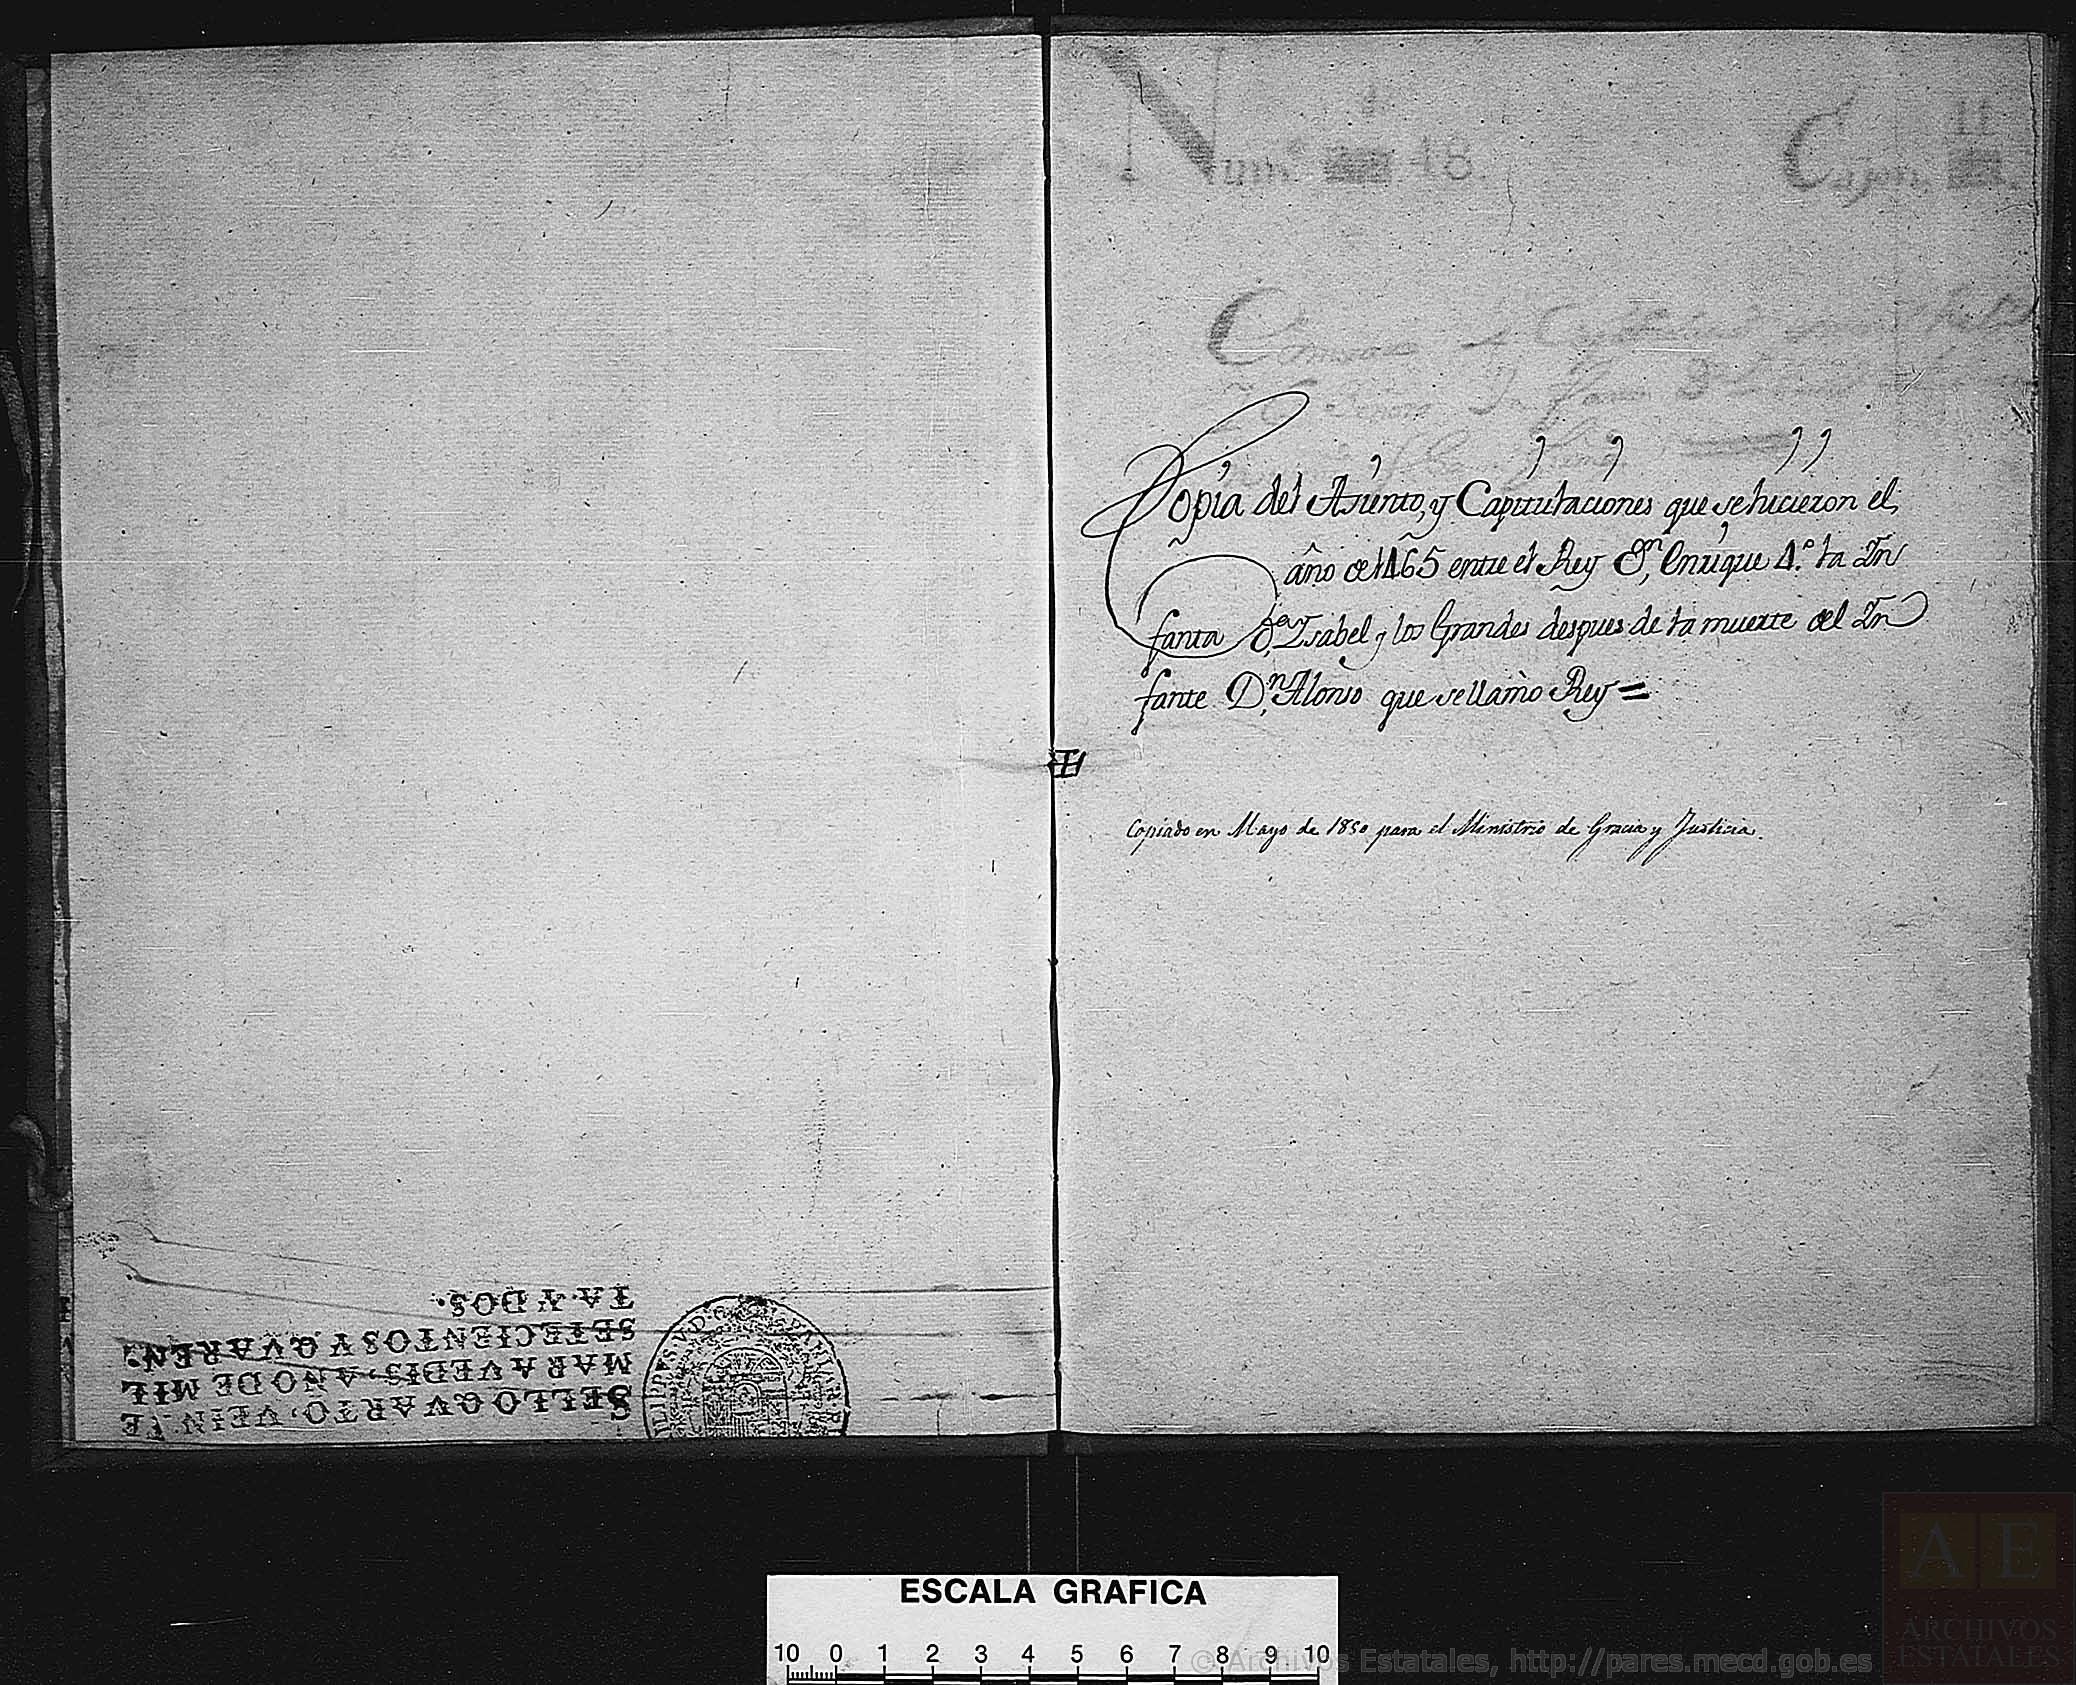 SELLO QVARTO, VEINTE
MARAVEDIS, AÑO DE MIL
SETECIENTOS Y QVAREN-
TA Y DOS.
Num.º 18.
Cajon 11
Copia del Asiento, y Capitulaciones que se hicieron el
año de 1465 entre el Rey Dn. Enrique 4.º la In
fanta Da. Isabel y los Grandes despues de la muerte del In
fante Dn. Alonso que se llamo Rey =
Copiado en Mayo de 1850 para el Ministrio de Gracia y Justicia.
ESCALA GRAFICA
10 0 1 2 3 4 5 6 7 8 9 10
© Archivos Estatales, http://pares.mecd.gob.es
AE
ARCHIVOS
ESTATALES